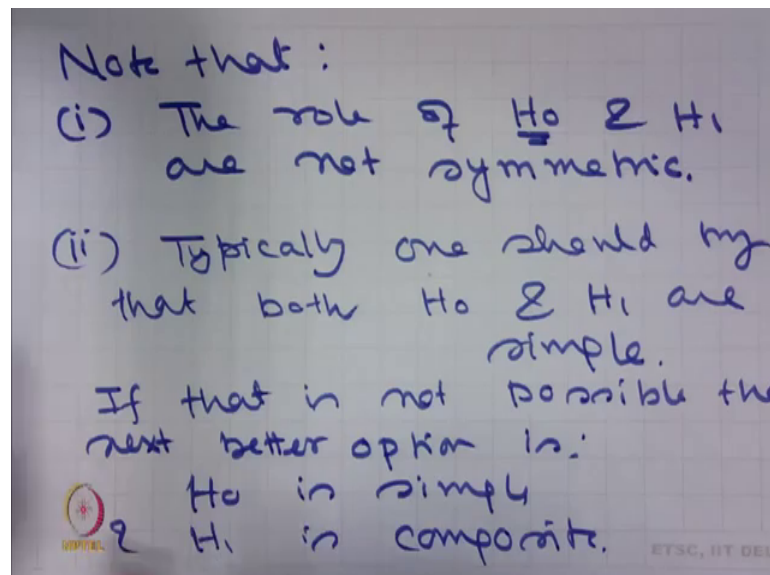 Note that:
(i) The role of H0 & H1
are not symmetric.
(ii) Typically one should try
that both H0 & H1 are
simple.
If that is not possible the
next better option is:
H0 is simple
& H1 is composite.
NPTEL
ETSC, IIT DEL